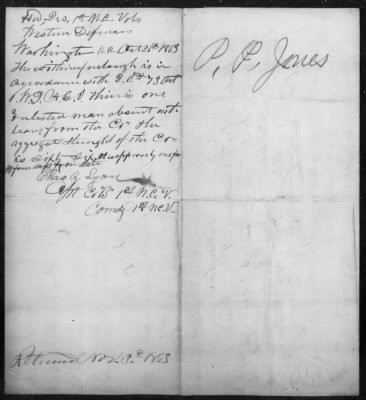 Hd. Qrs. 1st N.C. Vols
Western Defenses
Washington N.C. Oct 26th 1863
The within furlough is in
accordance with G.O. No 73 Art
There is one
Enlisted man absent with
leave from the Co. The
aggregate strength of the Co
is Sixty Six
Chas. A. Lyon
Capt Co "B" 1st N.C.V.
Comdg 1st N.C.V.
Returned Nov 3d 1863
P. P. Jones